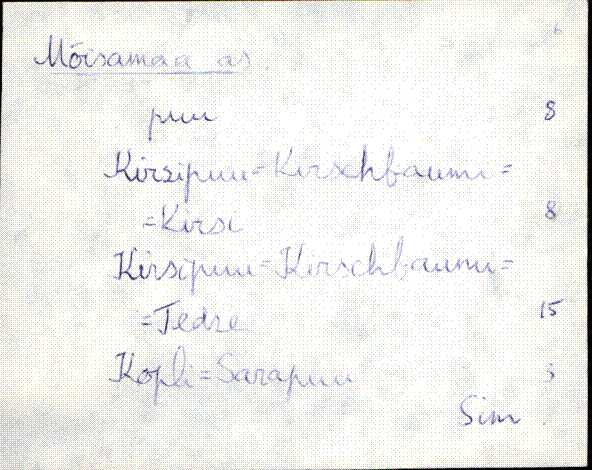 Mõisamaa as.
puu 8
Kirsipuu=Kirschbaumi=
=Kirsi 8
Kirsipuu=Kirschbaumi=
=Tedre 15
Kopli=Sarapuu 3
Sim.